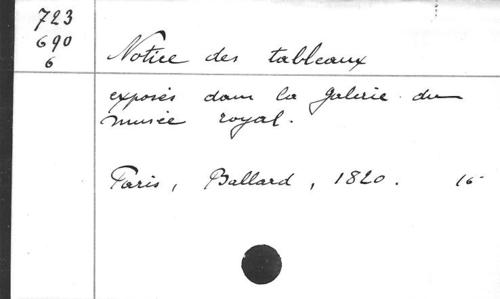 723
690
6
Notice des tableaux
exposés dans la galerie du
musée royal.
Paris, Ballard, 1820. 16